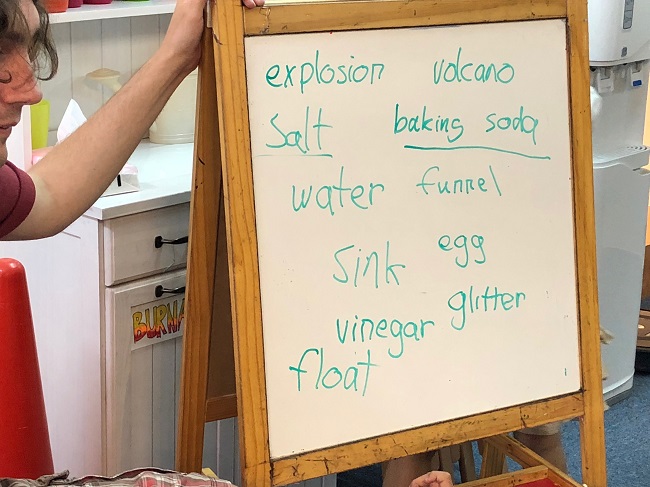 explosion volcano
Salt baking soda
water funnel
sink egg
vinegar glitter
float
BURNA